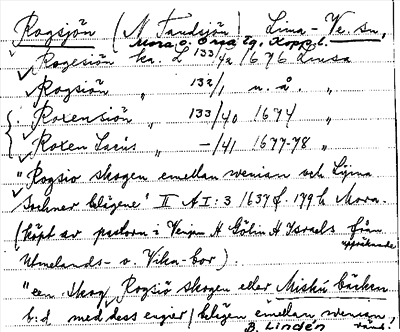 Rogsjön (N. Tandsjön) Lima - Ve. sn,
Mora o. Orsa tg. Kopp. l.
Rogesiön ka. L 133/42 1676 Limsa
Rogsiön " 132/1 u. å. "
Rorensiön " 133/40 1674 "
Roren Lacus " -/41 1677-78 "
"Rogsio skogen emellan wenian och Lijma
Sochner belägene" II A I: 3 1637 f. 179 v Mora.
(köpt av pastorn i Venjan H. Gölin H Israels från
Utmelands- o. Vika-bor).
"een skog Rogsiö skogen eller Miskú bäcken
b:d med dess enger / belägen emellan wenian,
B. Lindén